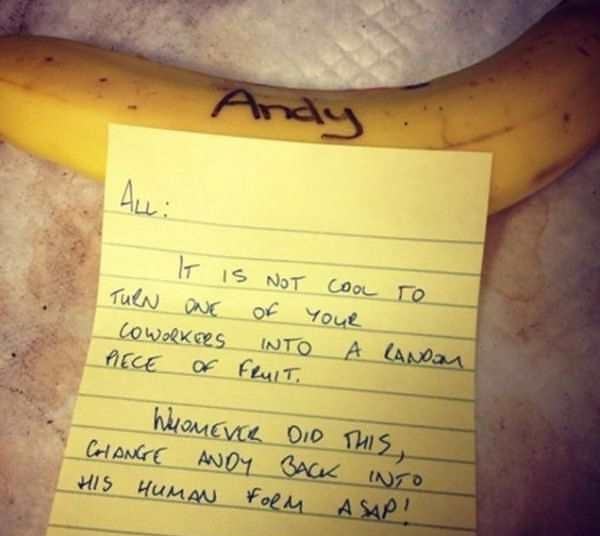 Andy
ALL:
IT IS NOT COOL TO
TURN ONE OF YOUR
COWORKERS INTO A RANDOM
PIECE OF FRUIT.
WHOMEVER DID THIS,
CHANGE ANDY BACK INTO
HIS HUMAN FORM ASAP!